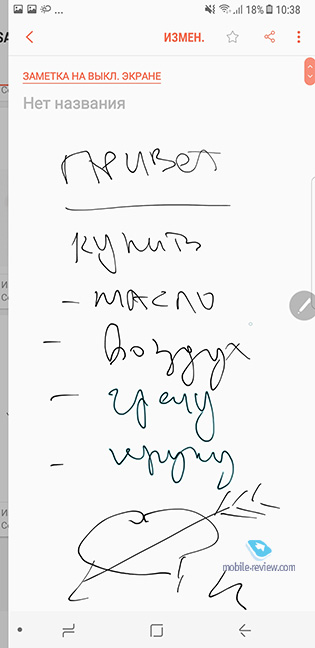 18% 10:38
ИЗМЕН.
ЗАМЕТКА НА ВЫКЛ. ЭКРАНЕ
Нет названия
Привет
купить
- масло
- воздух
-
- крупу
mobile-review.com